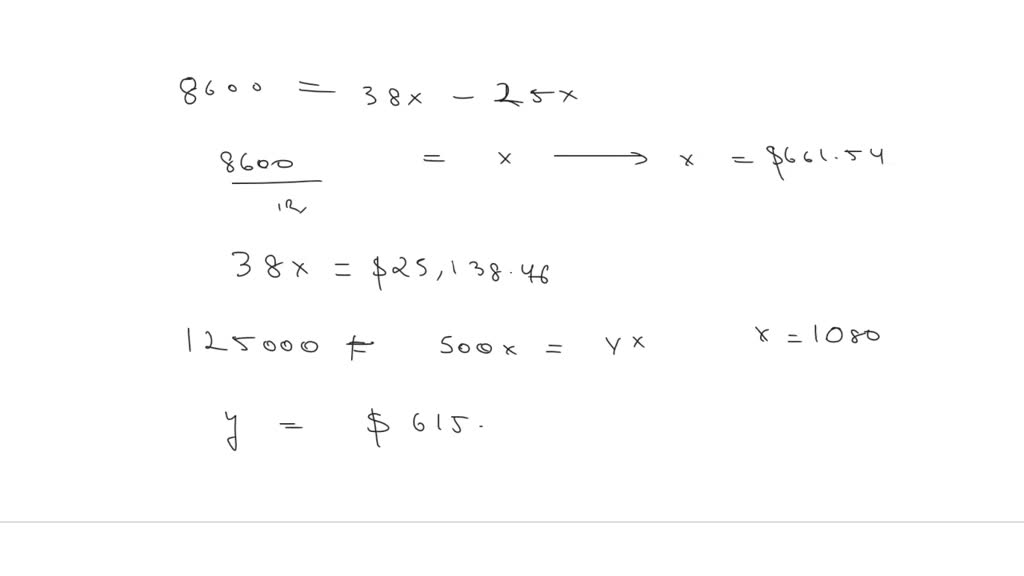 8600 = 38x - 25x
8600 = x ⟶ x = $661.54
12
38x = $25,138.46
125000 + 500x = yx x = 1080
y = $ 615.